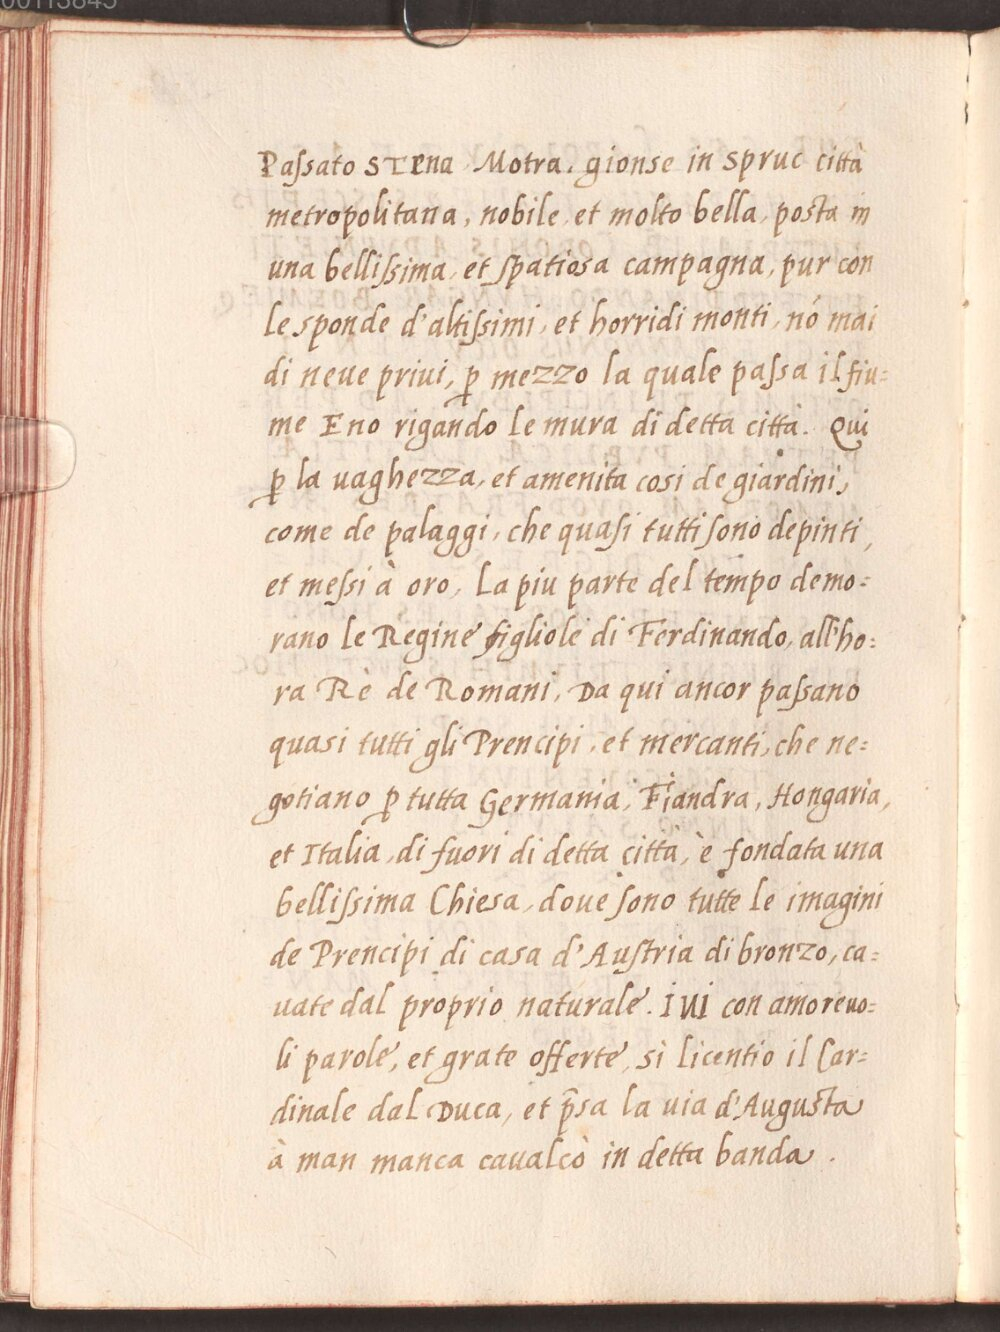 00113845
Paſsato STEna Motra. gionse in spruc città
metropolitana, nobile et molto bella, posta in
una belliſsima, et ſpatiosa campagna, pur con
le sponde d'altiſsimi, et horridi monti, nō mai
di neue priui, ꝑ mezzo la quale paſsa il fiu=
me Eno rigando le mura di detta città. Qui
ꝑ la uaghezza, et amenita cosi de giardini,
come de palaggi, che quaſi tutti ſono depinti,
et meſsi à oro, La piu parte del tempo demo=
rano le Regine figliole di Ferdinando, all'ho=
ra Rè de Romani, Da qui ancor paſsano
quasi tutti gli Prencipi, et mercanti, che ne=
gotiano ꝑ tutta Germania, Fiandra, Hongaria,
et Italia, di fuori di detta città, è fondata una
belliſsima Chiesa, doue ſono tutte le imagini
de Prencipi di casa d'Auſtria di bronzo, ca=
uate dal proprio naturale. IUI con amoreuo=
li parole, et grate offerte, si licentio il Car=
dinale dal Duca, et p̃sa la uia d'Augusta
à man manca caualcò in detta banda.